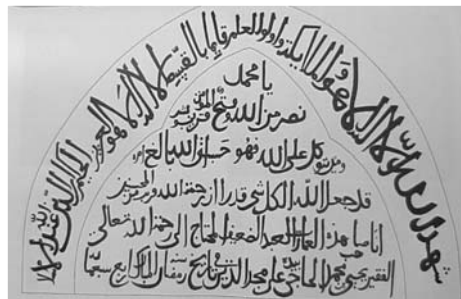 شهد الله انه لا اله الا هو والملائكة واولوا العلم قايما بالقسط لا اله الا هو العزيز الحكيم ان الدين عند الله الاسلام
يا محمد
نصر من الله وفتح قريب وبشر المؤمنين
ومن يتوكل على الله فهو حسبه ان الله بالغ امره
قد جعل الله لكل شي قدرا رحمة الله
هذه العمارة العبد الضعيف المحتاج الى رحمة الله تعالى
الفقير محمد علي مجد الدين في تاريخ رمضان المبارك سبعماية